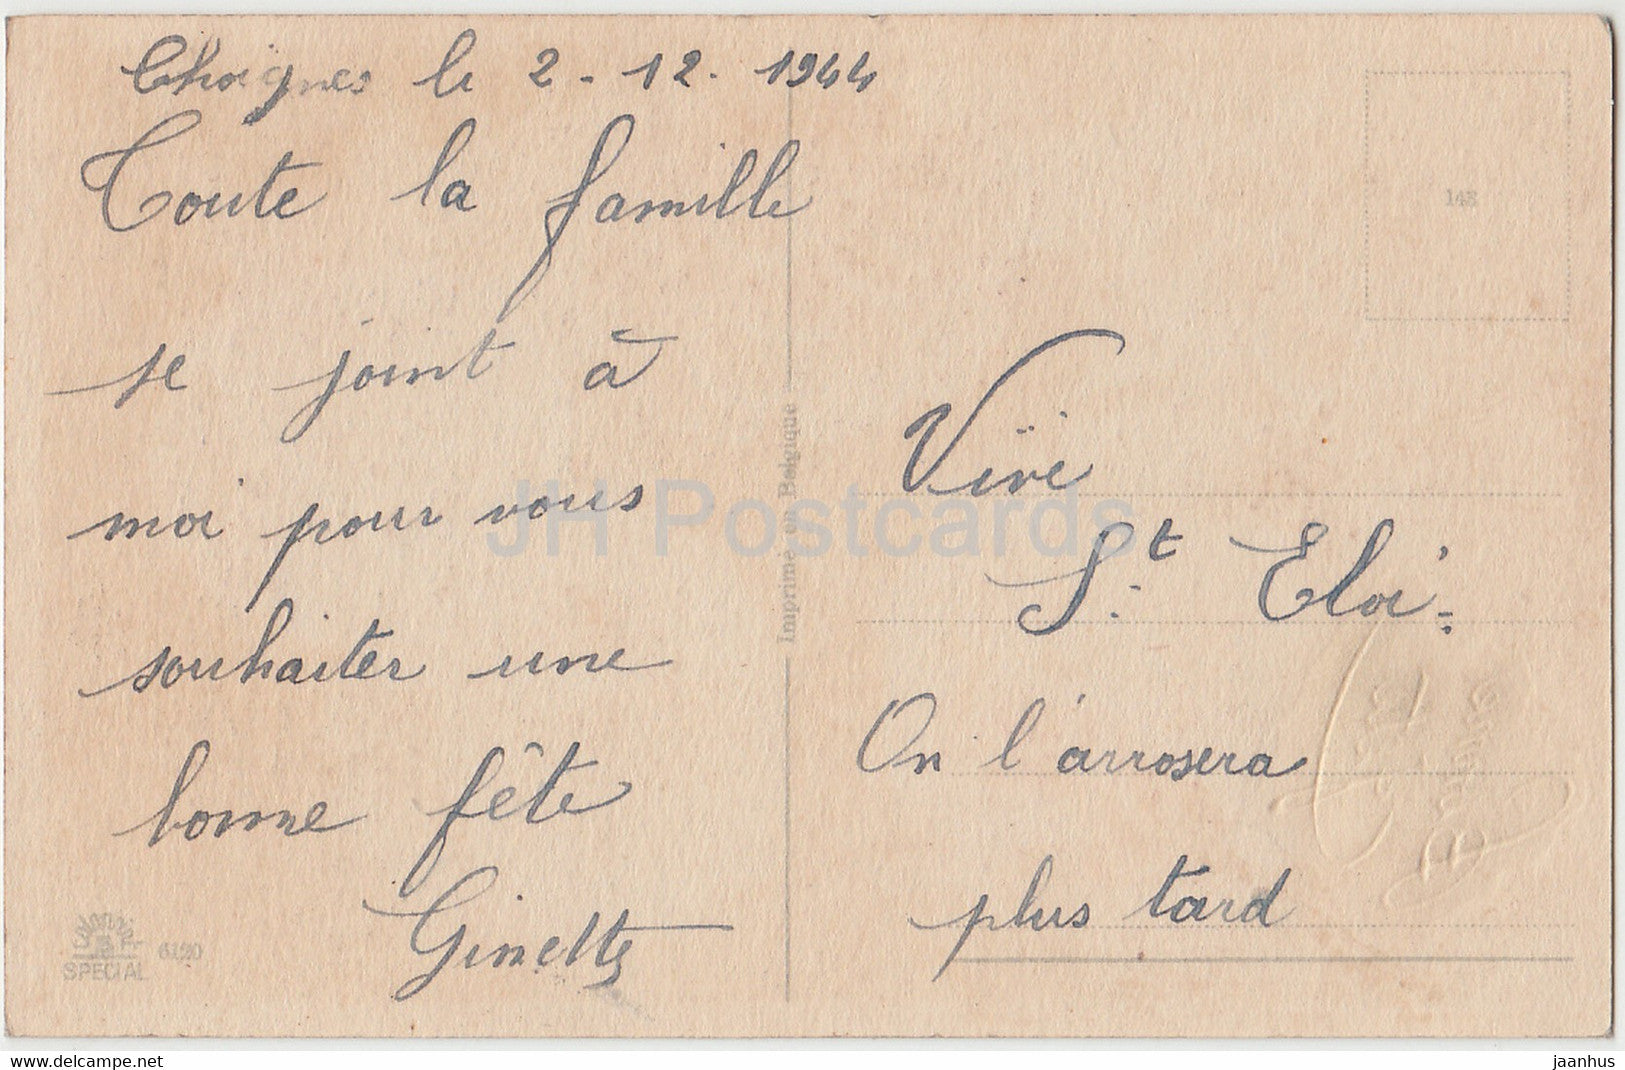 Choignes le 2 - 12. 1944
Toute la famille
se joint à
moi pour vous
souhaiter une
bonne fête
Ginette
Vive
St Eloi.
On l'arrosera
plus tard
Imprimé en Belgique
SPECIAL 6120
JH Postcards
https://www.delcampe.net
jaanhus